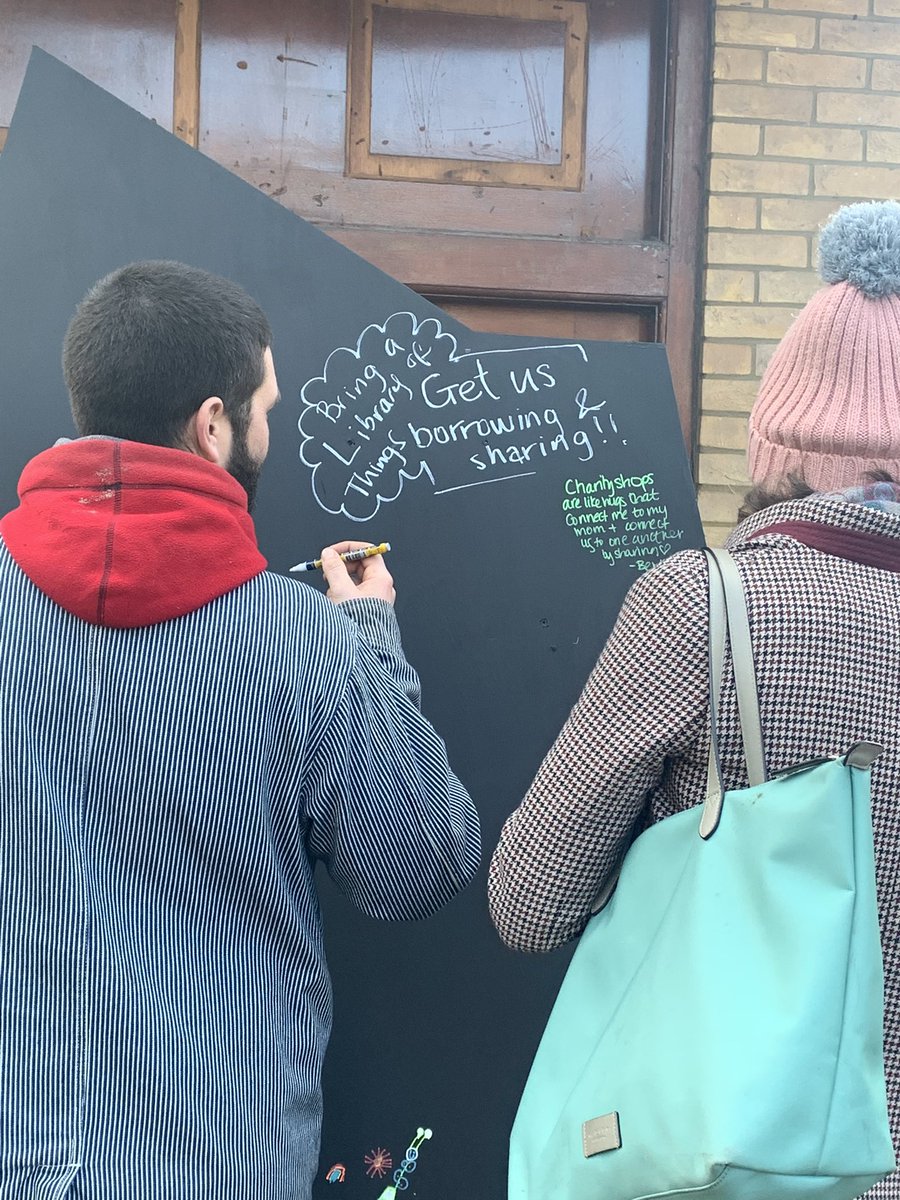 Bring a
Library of
Things
Get us
borrowing &
sharing!!
Charity shops
are like hugs that
connect me to my
mom + connect
us to one another
by sharing ♡